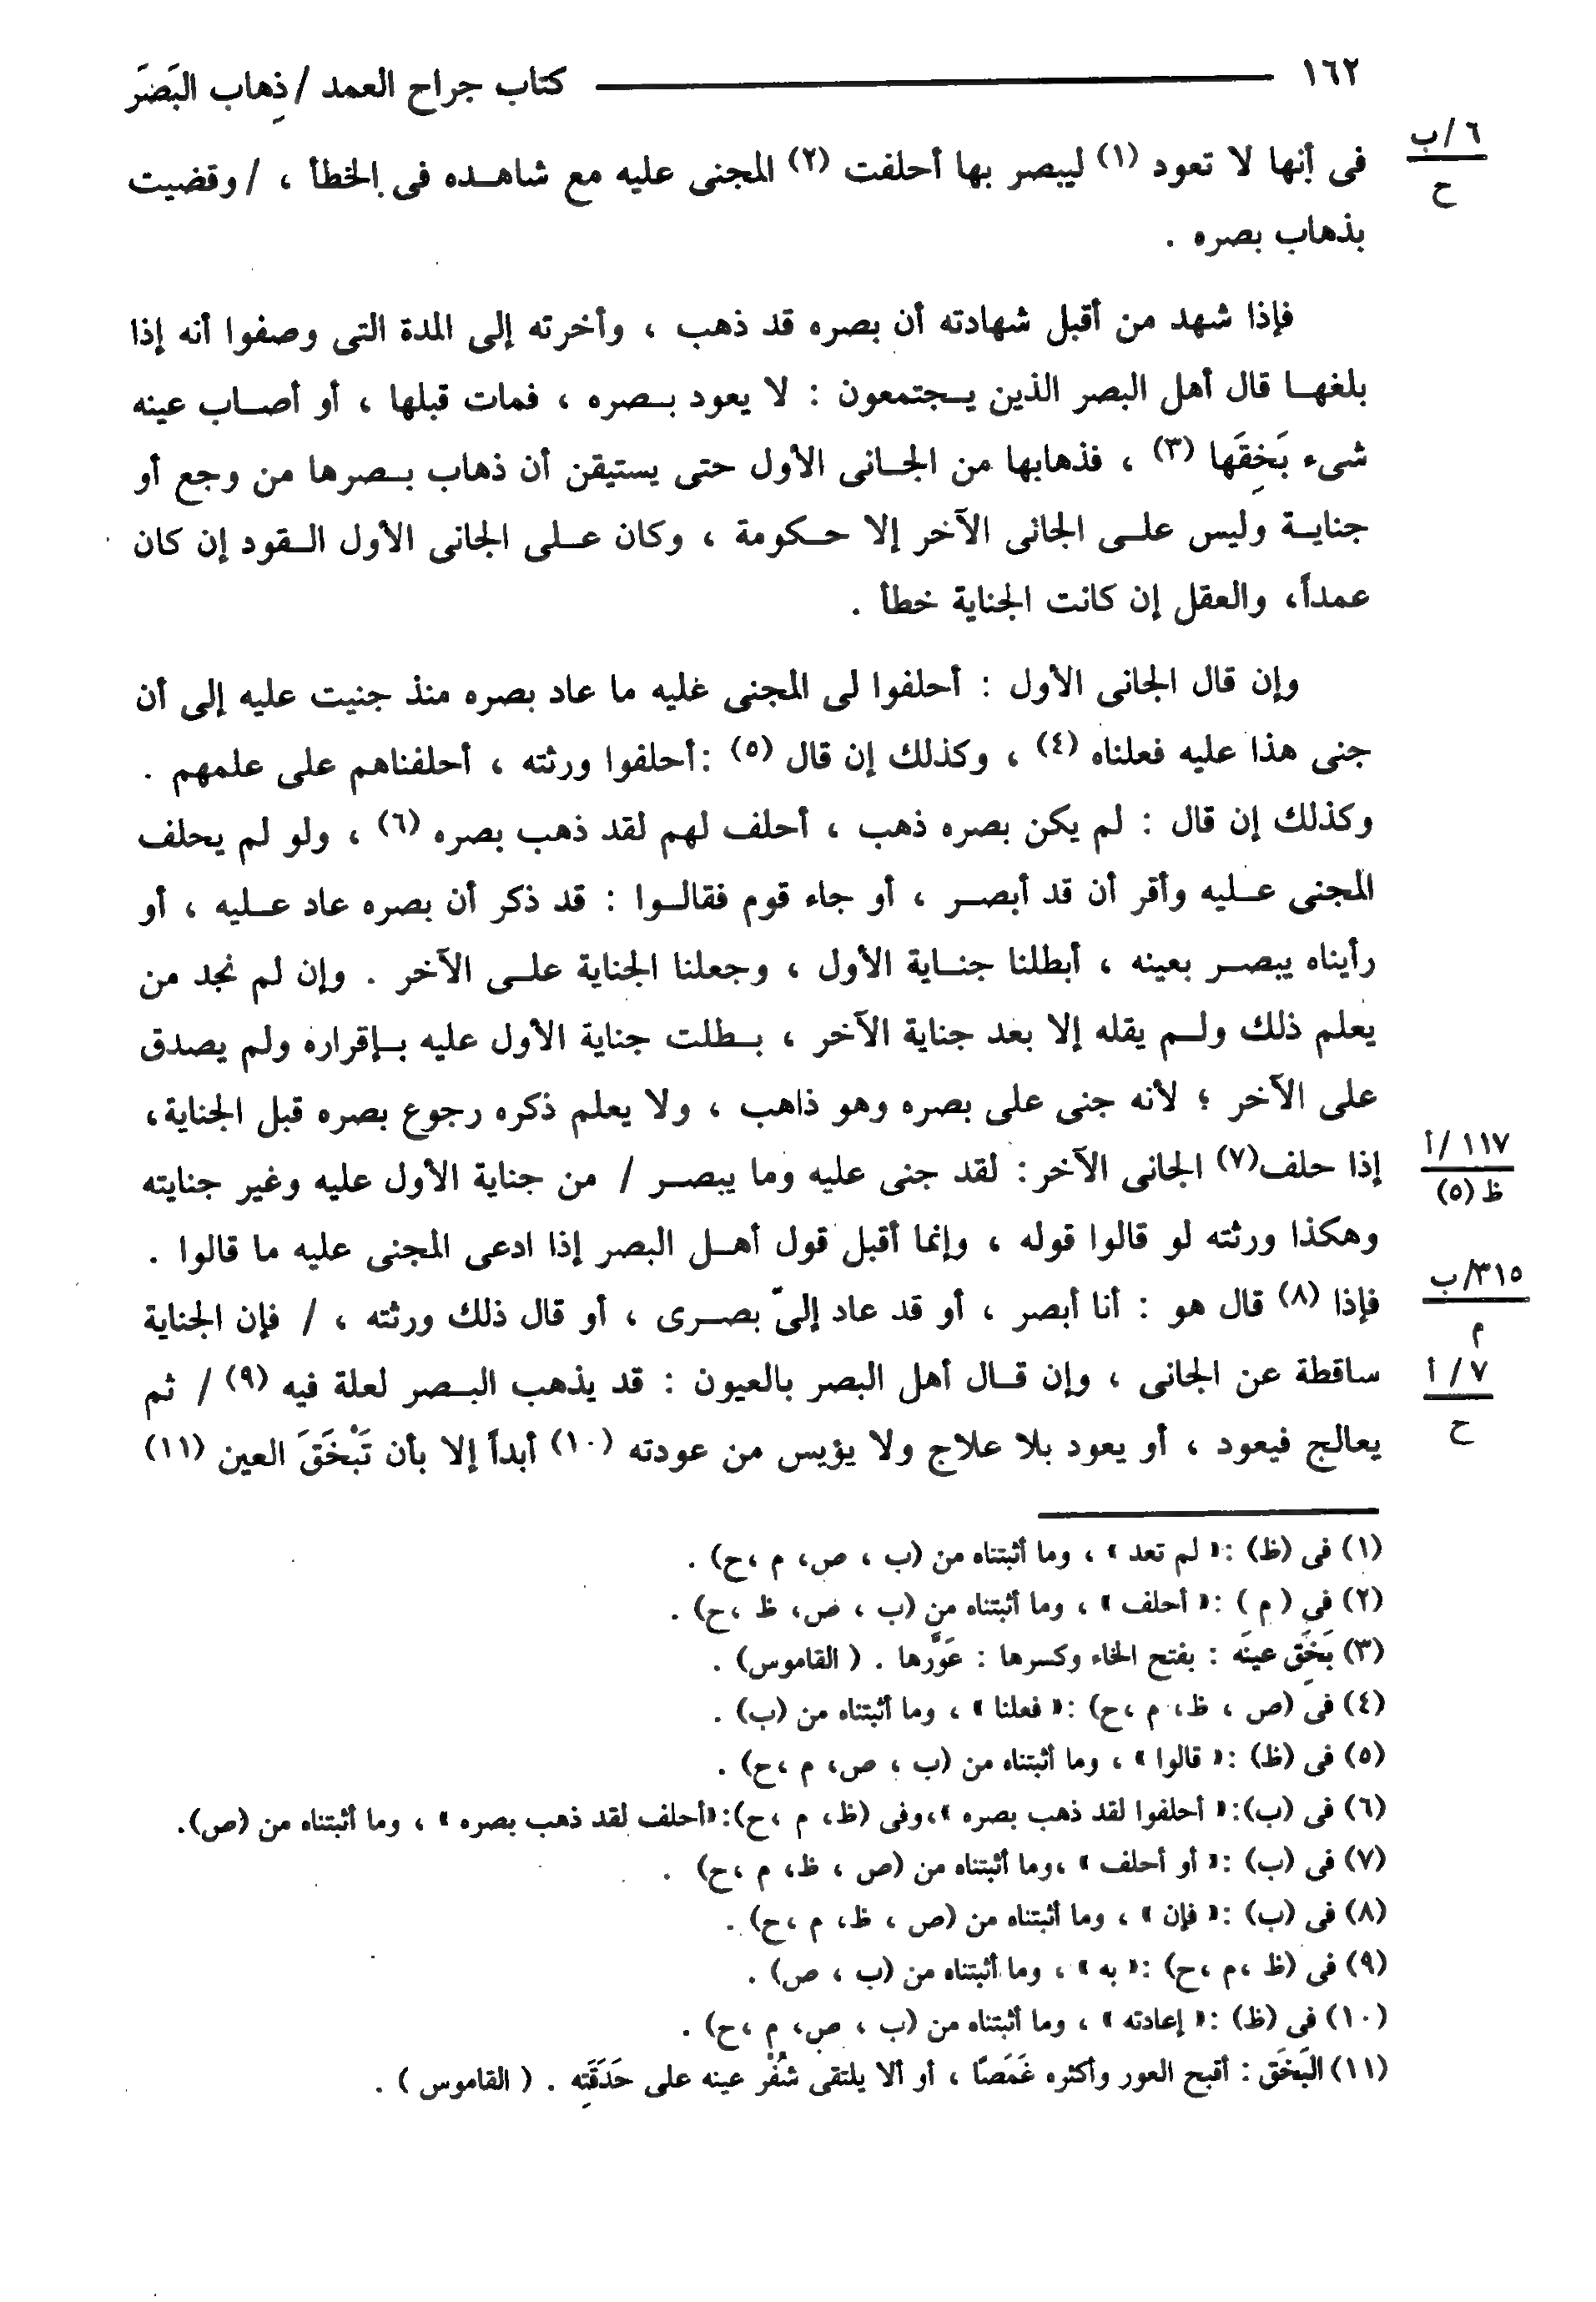 ١٦٢ كتاب جراح العمد / ذِهاب البَصَر
٦ / ب
ح
فى أنها لا تعود (١) ليبصر بها أحلفت (٢) المجنى عليه مع شاهده فى الخطأ ، / وقضيت
بذهاب بصره .
فإذا شهد من أقبل شهادته أن بصره قد ذهب ، وأخرته إلى المدة التى وصفوا أنه إذا
بلغها قال أهل البصر الذين يجتمعون : لا يعود بصره ، فمات قبلها ، أو أصاب عينه
شىء بَخِقَها (٣) ، فذهابها من الجانى الأول حتى يستيقن أن ذهاب بصرها من وجع أو
جناية وليس على الجانى الآخر إلا حكومة ، وكان على الجانى الأول القود إن كان
عمداً، والعقل إن كانت الجناية خطأ .
وإن قال الجانى الأول : أحلفوا لى المجنى غليه ما عاد بصره منذ جنيت عليه إلى أن
جنى هذا عليه فعلناه (٤) ، وكذلك إن قال (٥) :أحلفوا ورثته ، أحلفناهم على علمهم .
وكذلك إن قال : لم يكن بصره ذهب ، أحلف لهم لقد ذهب بصره (٦) ، ولو لم يحلف
المجنى عليه وأقر أن قد أبصر ، أو جاء قوم فقالوا : قد ذكر أن بصره عاد عليه ، أو
رأيناه يبصر بعينه ، أبطلنا جناية الأول ، وجعلنا الجناية على الآخر . وإن لم نجد من
يعلم ذلك ولم يقله إلا بعد جناية الآخر ، بطلت جناية الأول عليه بإقراره ولم يصدق
على الآخر ؛ لأنه جنى على بصره وهو ذاهب ، ولا يعلم ذكره رجوع بصره قبل الجناية،
١١٧ / أ
ظ (٥)
إذا حلف(٧) الجانى الآخر: لقد جنى عليه وما يبصر / من جناية الأول عليه وغير جنايته
وهكذا ورثته لو قالوا قوله ، وإنما أقبل قول أهل البصر إذا ادعى المجنى عليه ما قالوا .
٣١٥/ب
م
فإذا (٨) قال هو : أنا أبصر ، أو قد عاد إلىّ بصرى ، أو قال ذلك ورثته ، / فإن الجناية
٧ / أ
ح
ساقطة عن الجانى ، وإن قال أهل البصر بالعيون : قد يذهب البصر لعلة فيه (٩) / ثم
يعالج فيعود ، أو يعود بلا علاج ولا يؤيس من عودته (١٠) أبداً إلا بأن تَبْخَقَ العين (١١)
(١) فى (ظ) :« لم تعد » ، وما أثبتناه من (ب ، ص، م ،ح) .
(٢) فى ( م ) :« أحلف » ، وما أثبتناه من (ب ، ص، ظ ،ح) .
(٣) بَخَِق عينَه : بفتح الخاء وكسرها : عَوَّرها . ( القاموس) .
(٤) فى (ص ، ظ، م ،ح) :« فعلنا » ، وما أثبتناه من (ب) .
(٥) فى (ظ) :« قالوا » ، وما أثبتناه من (ب ، ص، م ،ح) .
(٦) فى (ب):« أحلفوا لقد ذهب بصره »،وفى (ظ، م ،ح):«أحلف لقد ذهب بصره » ، وما أثبتناه من (ص).
(٧) فى (ب) :« أو أحلف » ،وما أثبتناه من (ص ، ظ، م ،ح) .
(٨) فى (ب) :« فإن » ، وما أثبتناه من (ص ، ظ، م ،ح) .
(٩) فى (ظ ،م ،ح) :« به » ، وما أثبتناه من (ب ، ص) .
(١٠) فى (ظ) :« إعادته » ، وما أثبتناه من (ب ، ص، م ،ح) .
(١١) البَخَق : أقبح العور وأكثره غَمَصًا ، أو ألا يلتقى شُفْر عينه على حَدَقَتِه . ( القاموس ) .